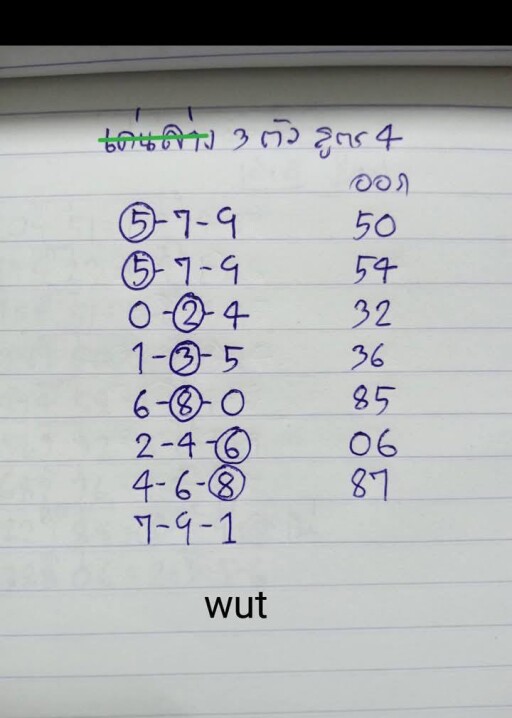 เด่นล่าง 3 ตัว สูตร 4
ออก
5-7-9 50
5-7-9 54
0-2-4 32
1-3-5 36
6-8-0 85
2-4-6 06
4-6-8 87
7-9-1
wut